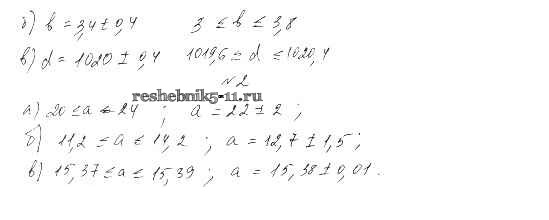 б) b = 3,4 ± 0,4 3 ≤ b ≤ 3,8
в) d = 1020 ± 0,4 1019,6 ≤ d ≤ 1020,4
№2
reshebnik5-11.ru
а) 20 ≤ a ≤ 24 ; a = 22 ± 2 ;
б) 11,2 ≤ a ≤ 14,2 ; a = 12,7 ± 1,5 ;
в) 15,37 ≤ a ≤ 15,39 ; a = 15,38 ± 0,01 .